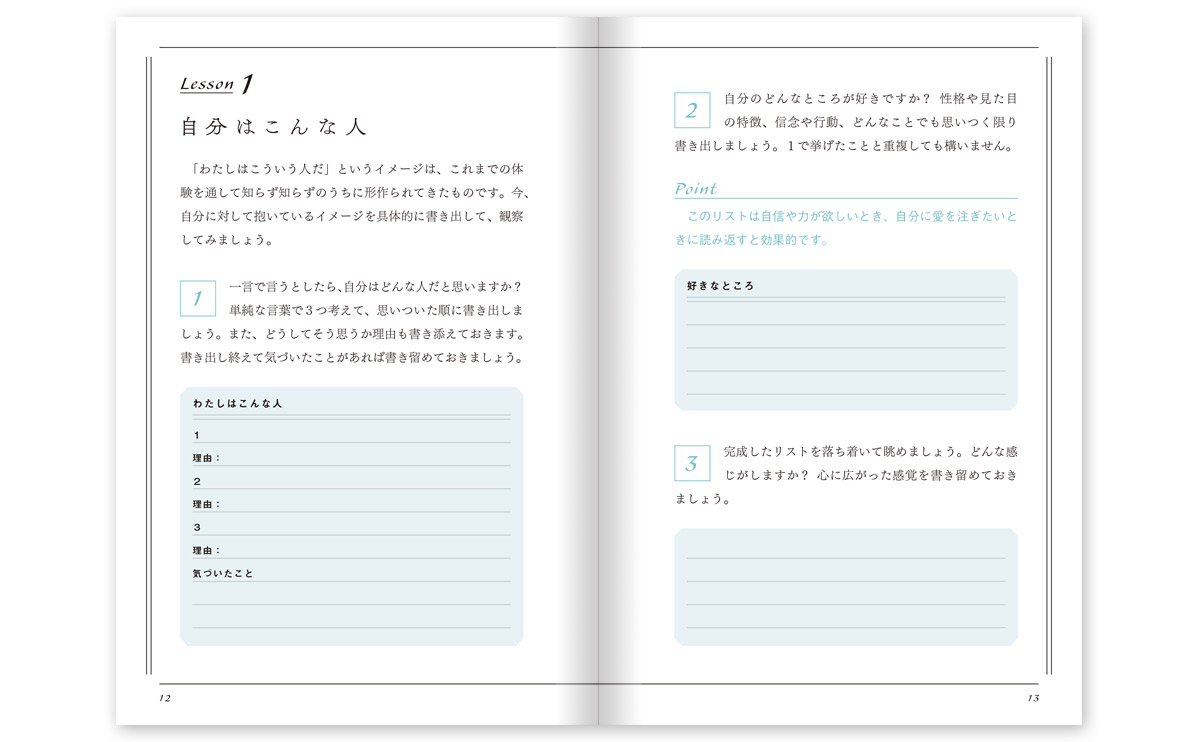 Lesson 1
自分はこんな人
「わたしはこういう人だ」というイメージは、これまでの体
験を通して知らず知らずのうちに形作られてきたものです。今、
自分に対して抱いているイメージを具体的に書き出して、観察
してみましょう。
1
一言で言うとしたら、自分はどんな人だと思いますか？
単純な言葉で３つ考えて、思いついた順に書き出しま
しょう。また、どうしてそう思うか理由も書き添えておきます。
書き出し終えて気づいたことがあれば書き留めておきましょう。
わたしはこんな人
1
理由：
2
理由：
3
理由：
気づいたこと
12
2
自分のどんなところが好きですか？ 性格や見た目
の特徴、信念や行動、どんなことでも思いつく限り
書き出しましょう。１で挙げたことと重複しても構いません。
Point
このリストは自信や力が欲しいとき、自分に愛を注ぎたいと
きに読み返すと効果的です。
好きなところ
3
完成したリストを落ち着いて眺めましょう。どんな感
じがしますか？ 心に広がった感覚を書き留めておき
ましょう。
13